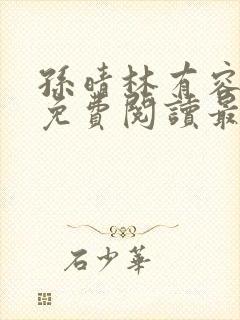 孫晴林有容
免費閱讀最
石少華